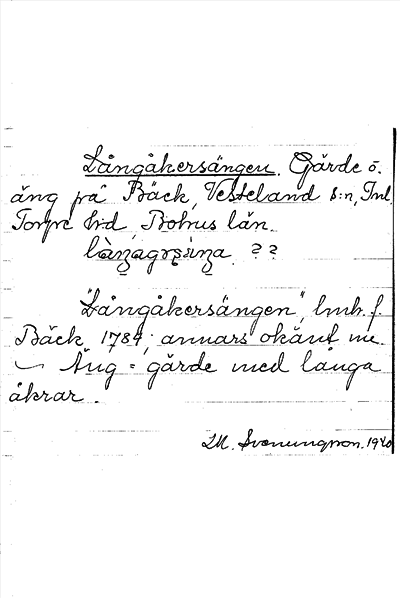 Långåkersängen. Gärde o.
äng på Bäck, Vesteland s:n, Inl.
Torpe hd, Bohus län.
? ?
"Långåkersängen", lmh. f.
Bäck, 1784; annars okänt nu.
Äng = gärde med långa
åkrar.
M. Svenungsson. 1920